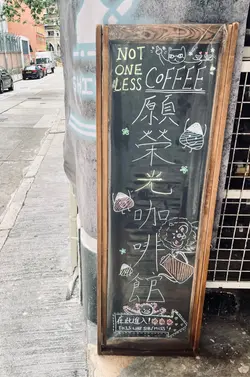 NOT
ONE
LESS
COFFEE
願
榮
光
咖
啡
館
在此進入!